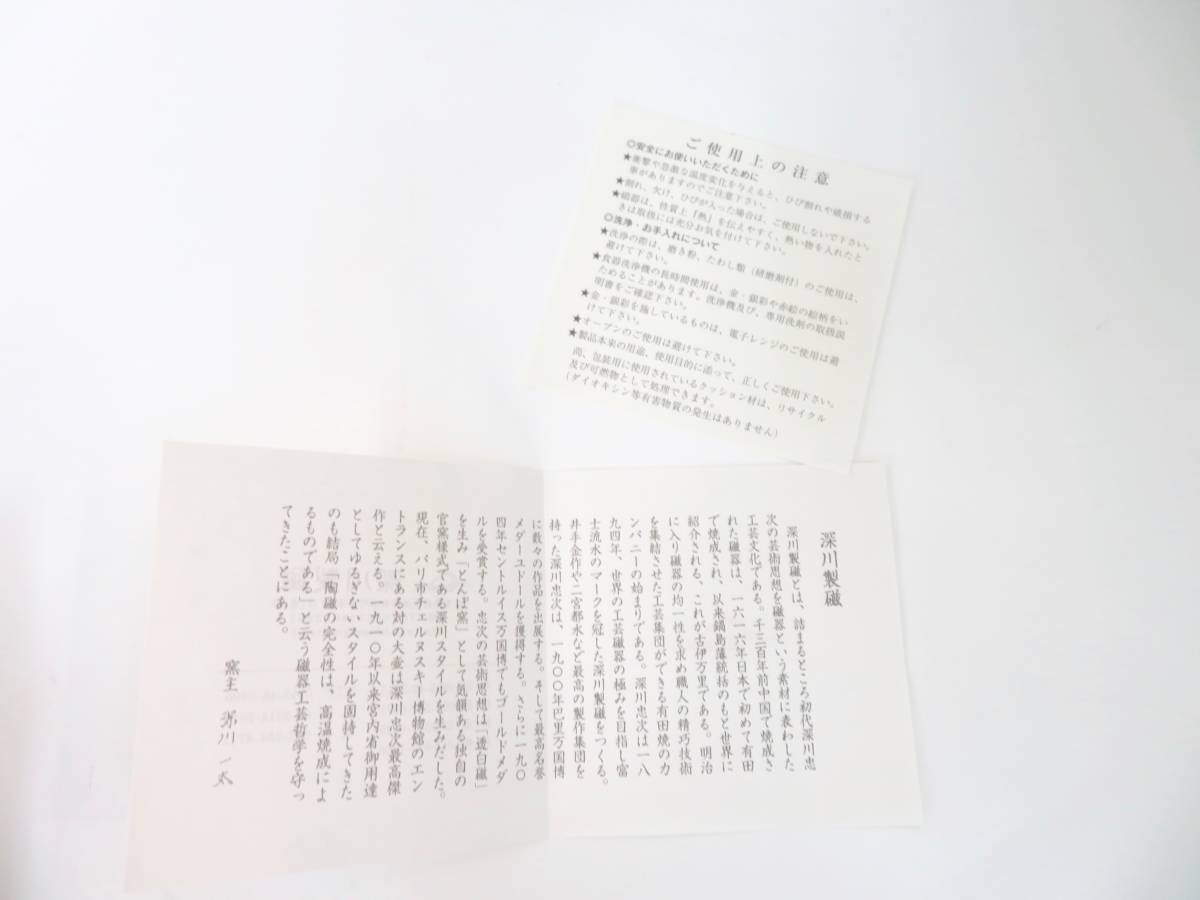 ご使用上の注意
◎安全にお使いいただくために
★衝撃や急激な温度変化を与えると、ひび割れや破損する
事がありますのでご注意下さい。
★割れ、欠け、ひびが入った場合は、ご使用しないで下さい。
★磁器は、性質上「熱」を伝えやすく、熱い物を入れたと
きは取扱には充分お気を付けて下さい。
◎洗浄・お手入れについて
★洗浄の際は、磨き粉、たわし類(研磨剤付)のご使用は、
避けて下さい。
★食器洗浄機の長時間使用は、金・銀彩や赤絵の絵柄をい
ためることがあります。洗浄機及び、専用洗剤の取扱説
明書をご確認下さい。
★金・銀彩を施しているものは、電子レンジのご使用は避
けて下さい。
★オーブンのご使用は避けて下さい。
★製品本来の用途、使用目的に添って、正しくご使用下さい。
尚、包装用に使用されているクッション材は、リサイクル
及び可燃物として処理できます。
(ダイオキシン等有害物質の発生はありません)
深川製磁
深川製磁とは、詰まるところ初代深川忠
次の芸術思想を磁器という素材に表わした
工芸文化である。千三百年前中国で焼成さ
れた磁器は、一六一六年日本で初めて有田
で焼成され、以来鍋島藩統括のもと世界に
紹介される。これが古伊万里である。明治
に入り磁器の均一性を求め職人の精巧技術
を集結させた工芸集団ができる有田焼のカ
ンパニーの始まりである。深川忠次は一八
九四年、世界の工芸磁器の極みを目指し富
士流水のマークを冠した深川製磁をつくる。
井手金作や二宮都水など最高の製作集団を
持った深川忠次は、一九〇〇年巴里万国博
に数々の作品を出展する。そして最高名誉
メダーユドールを獲得する。さらに一九〇
四年セントルイス万国博でもゴールドメダ
ルを受賞する。忠次の芸術思想は「透白磁」
を生み「とんぼ窯」として気韻ある独自の
官窯様式である深川スタイルを生みだした。
現在、パリ市チェルヌスキー博物館のエン
トランスにある対の大壷は深川忠次最高傑
作と云える。一九一〇年以来宮内省御用達
としてゆるぎないスタイルを固持してきた
のも結局「陶磁の完全性は、高温焼成によ
るものである」と云う磁器工芸哲学を守っ
てきたことにある。
窯主 深川一太